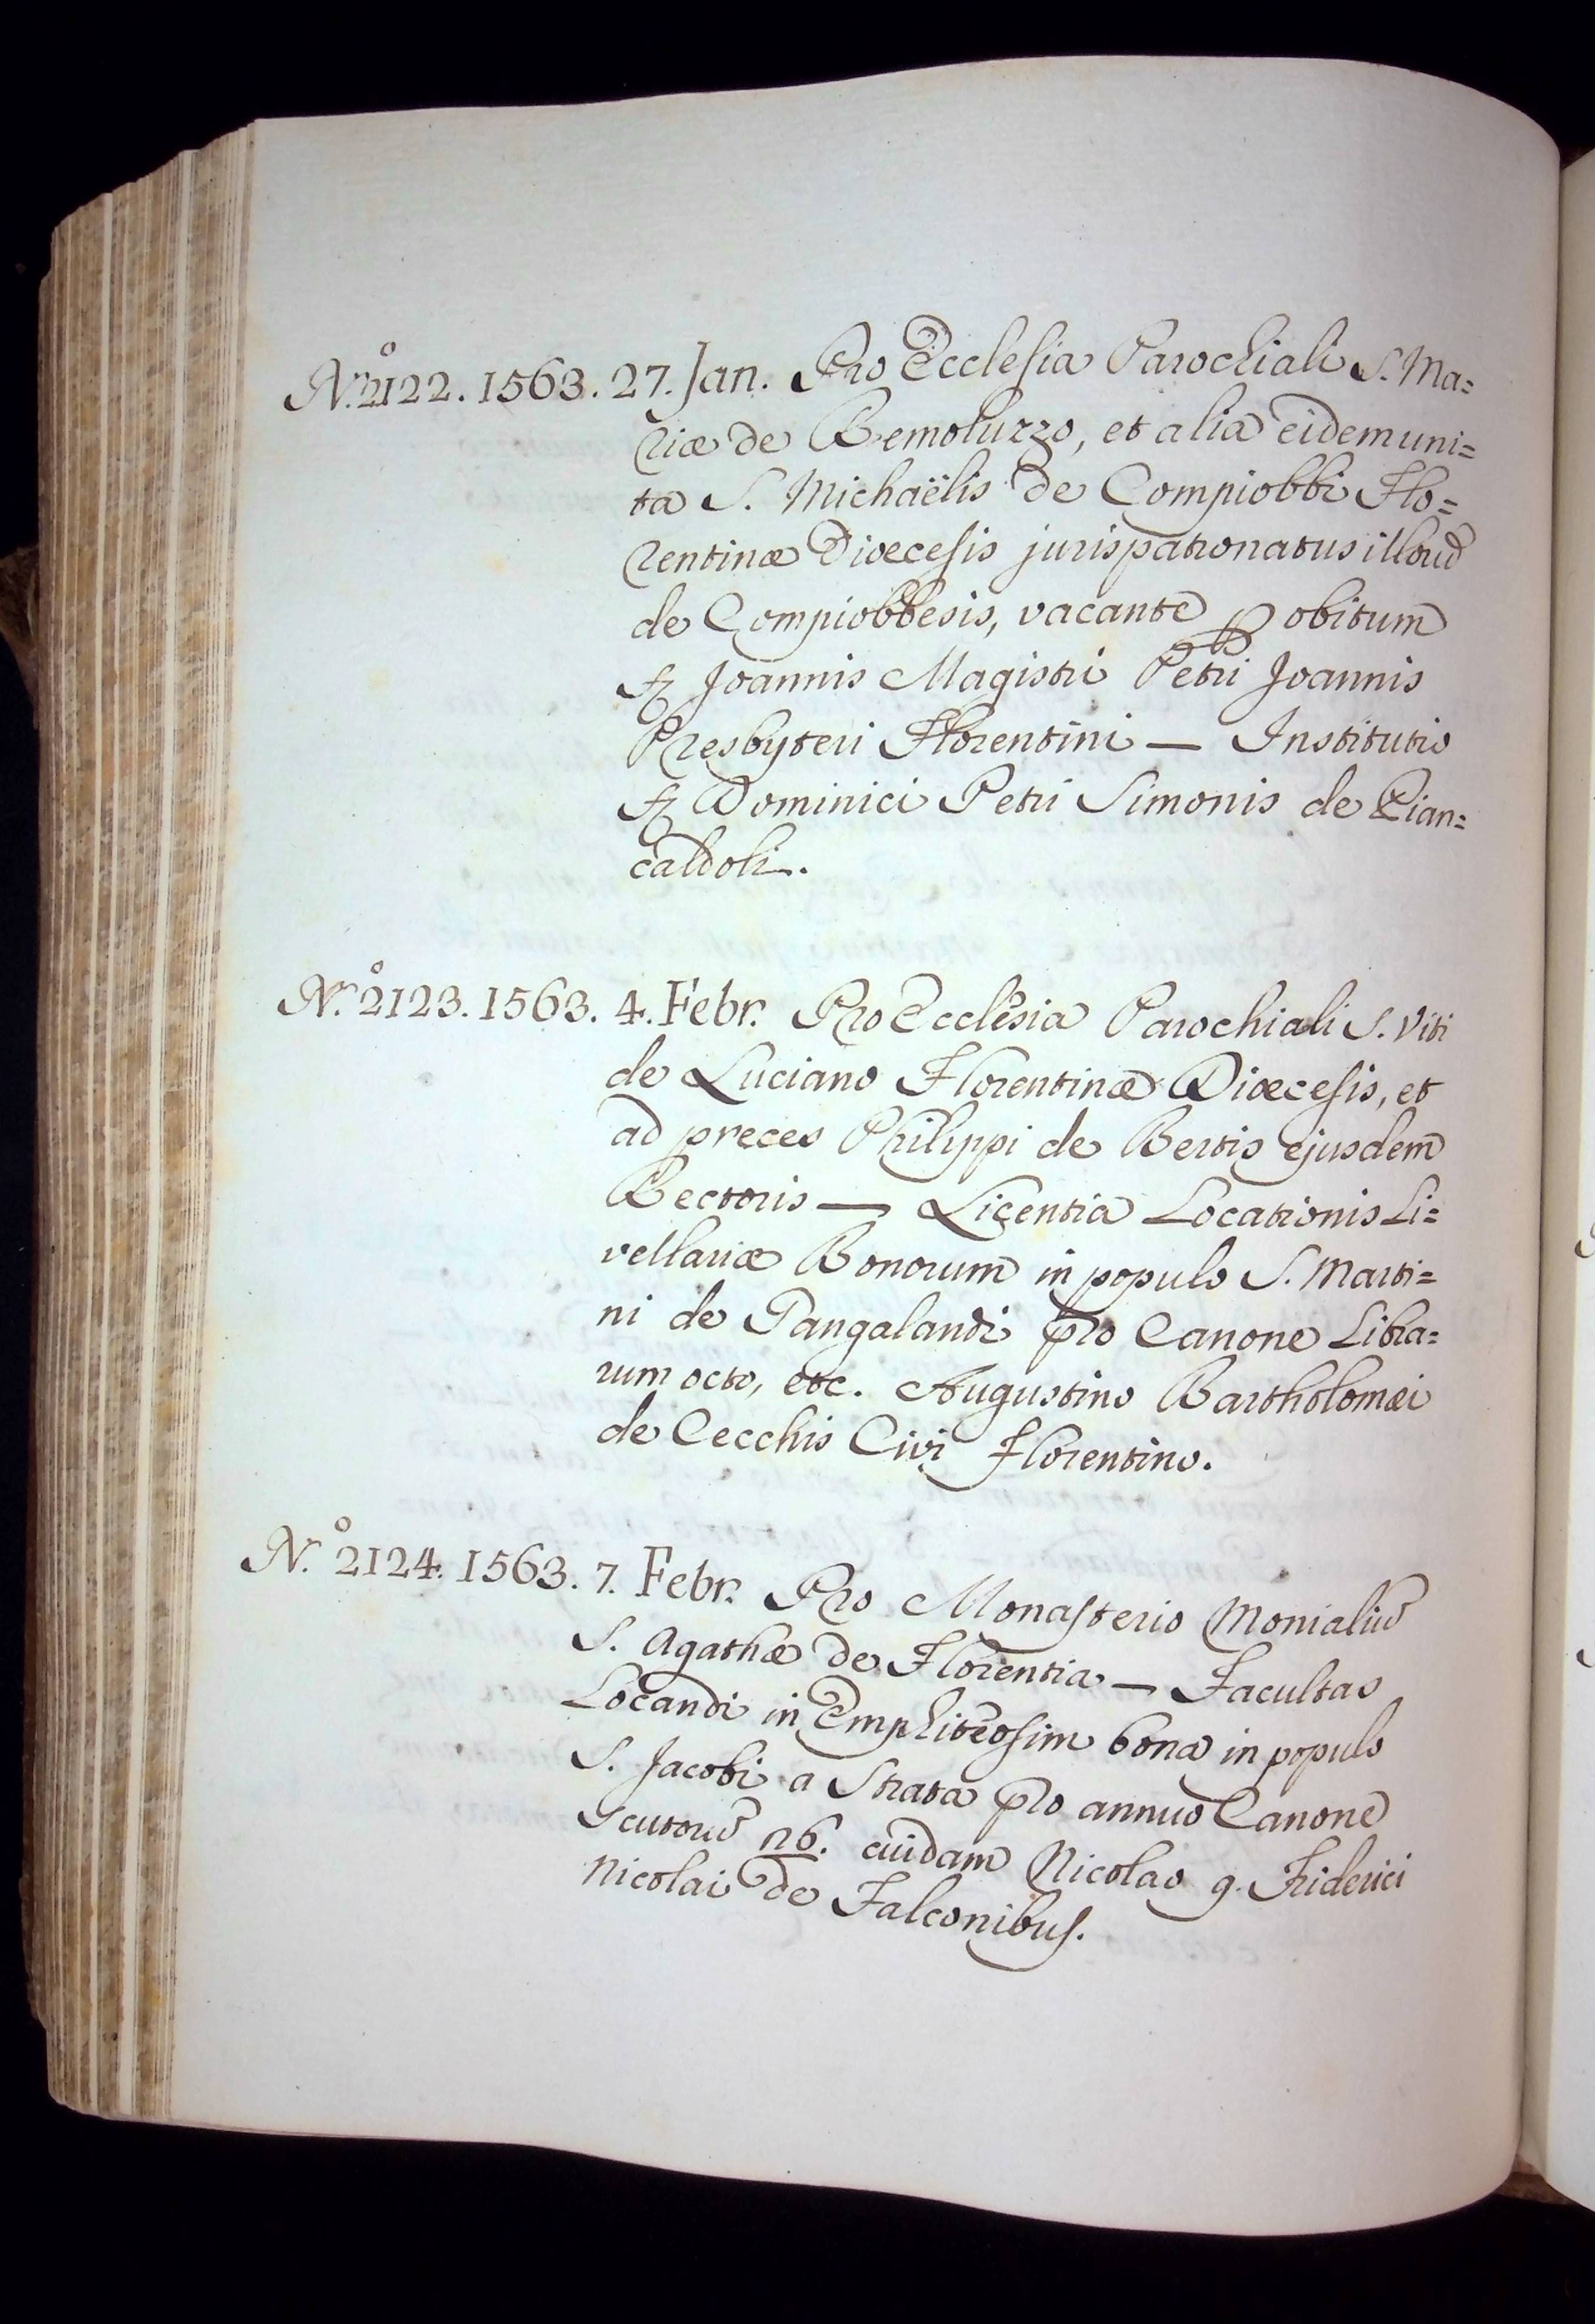 N.º 2122. 1563. 27. Jan. Pro Ecclesia Parochiali S. Ma=
riæ de Remoluzzo, et alia eidem uni=
ta S. Michaëlis de Compiobbi Flo=
rentinæ Diœcesis jurispatronatus illorũ
de Compiobbesis, vacante ꝑ obitum
Joannis Magistri Petri Joannis
Presbyteri Florentini — Institutio
Dominici Petri Simonis de Pian=
caldoli.
N.º 2123. 1563. 4. Febr. Pro Ecclesia Parochiali S. Viti
de Luciano Florentinæ Diœcesis, et
ad preces Philippi de Bertis ejusdem
Rectoris — Licentia Locationis Li=
vellariæ Bonorum in populo S. Marti=
ni de Gangalandi pro Canone Libra=
rum octo, etc. Augustino Bartholomæi
de Cecchis Civi Florentino.
N.º 2124. 1563. 7. Febr. Pro Monasterio Monialiũ
S. Agathæ de Florentia — Facultas
Locandi in Emphiteosim bona in populo
S. Jacobi a Strata pro annuo Canone
Scutorũ 26. cuidam Nicolao q. Friderici
Nicolai de Falconibus.